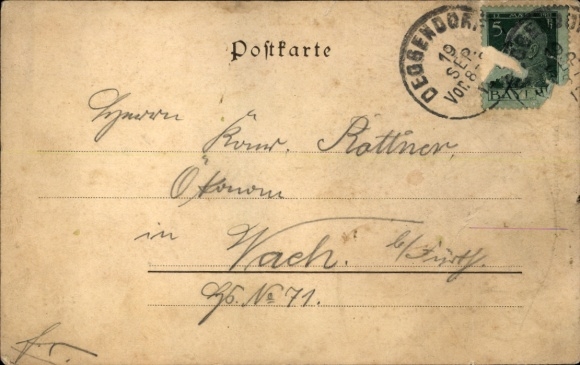 Postkarte
DEGGENDORF
19 SEP.
Vor. 8-
5
BAYERN
Herrn Konr. Rottner,
Ökonom
in Vach. b/Fürth.
Hs. No 71.